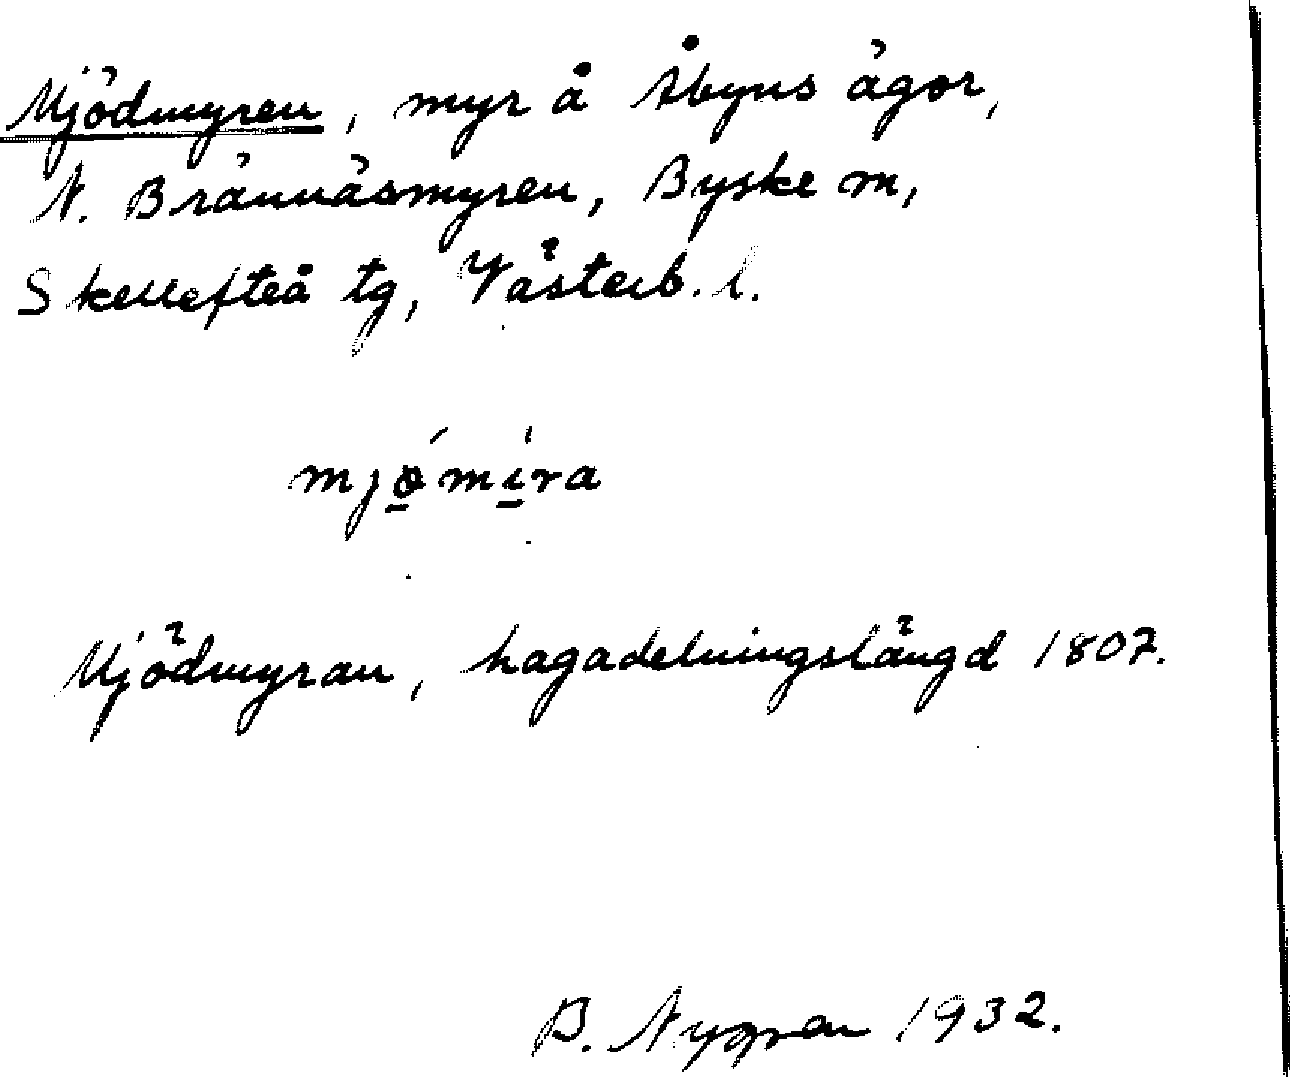 Mjödmyren, myr å Åbyns ägor,
N. Brännäsmyren, Byske sn,
Skellefteå tg, Västerb. l.
mjǿmíra
Mjödmyran, hagadelningslängd 1807.
B. Nygren 1932.